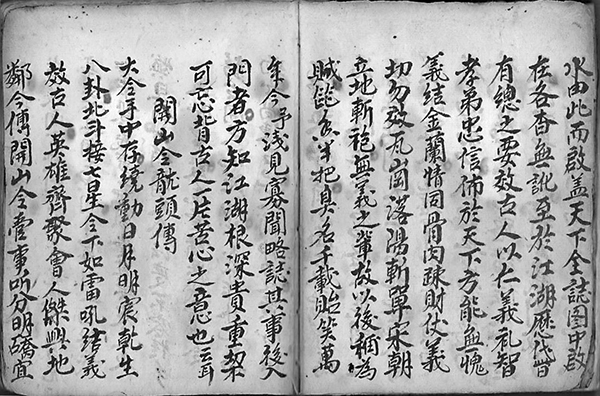 水由此而啟蓋天下全誌图中啟
在各杳無訛至於江湖歷代
有總之要效古人以仁義礼智
孝弟忠信佈於天下方能無愧
義結金蘭情同骨肉疎財仗義
切勿效瓦崗洛陽斬單宋朝
立地斬袍無義之輩故以後稱為
賊 半把臭名千載貽笑萬
年今予浅見寡聞略誌其事後入
門者方知江湖根深貴重
可忘背古人一片苦心之意也云耳
開山令龍頭傳
大令手中存繞動日月明宸乾生
八卦北斗接七星令下如雷吼结義
效古人英雄齊聚會人傑與地
鄰今傳開山令當事听分明 宜